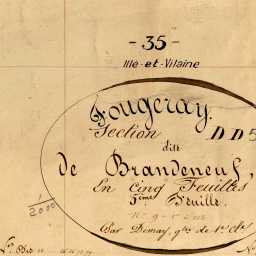 - 35 -
Ille-et-Vilaine
Fougeray.
Section D D 5
dite
de Brandeneuf,
En Cinq Feuilles
5ème Feuille.
1/2000
Par Demay, g.tre de 1re Cl.e